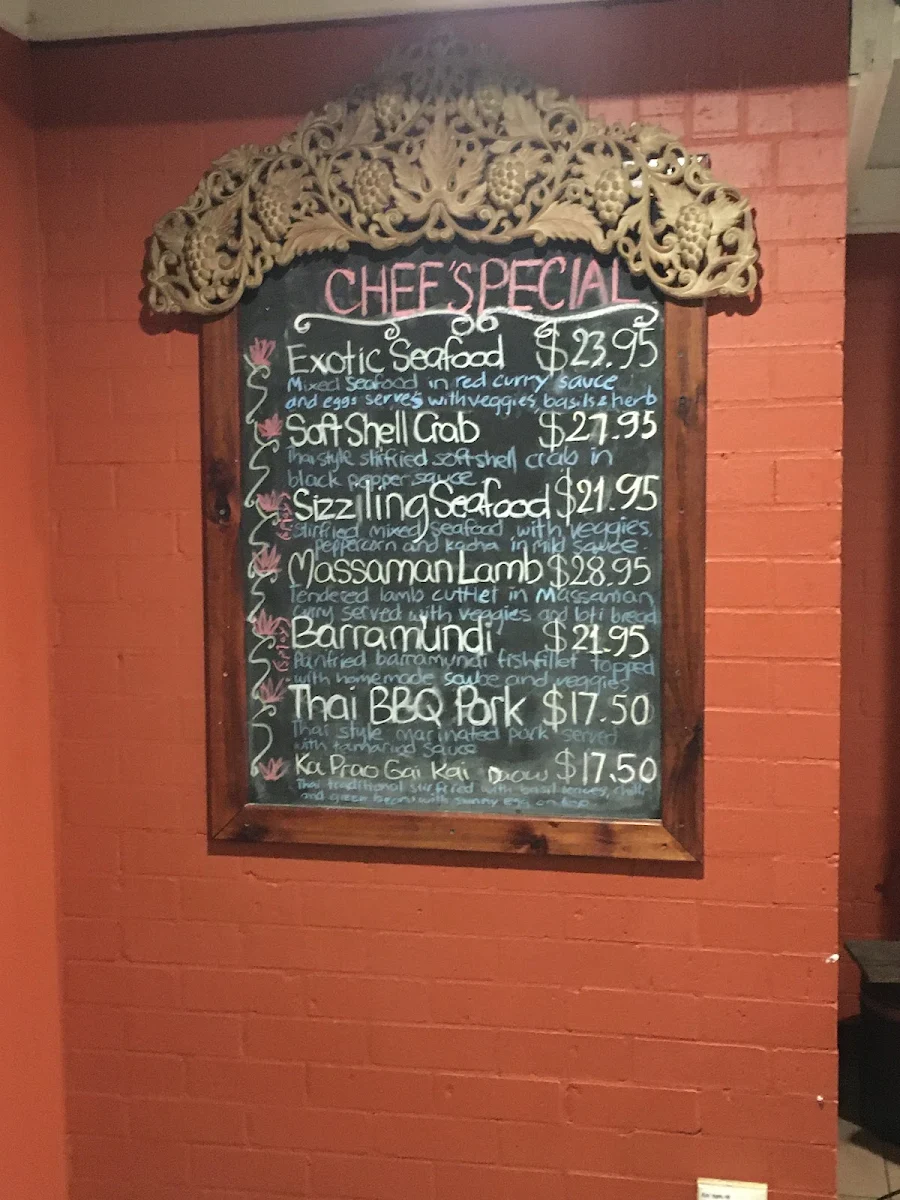 CHEF'SPECIAL
Exotic Seafood $23.95
Mixed Seafood in red curry sauce
and eggs serves with veggies, basils & herb
Soft Shell Crab $27.95
Thai style stirfried softshell crab in
black pepper sauce
Sizzling Seafood $21.95
Stirfried mixed seafood with veggies,
peppercorn and kacha in mild sauce
Massaman Lamb $28.95
Tendered lamb cuttlet in Massaman
Curry served with veggies and loti bread
Barramundi $21.95
Panfried barramundi fishfillet topped
with homemade sauce and veggies
Thai BBQ Pork $17.50
Thai style marinated pork served
with tamarind sauce
Ka Prao Gai Kai Daow $17.50
Thai traditional stirfried with basil leaves, chilli
and green beans with sunny egg on top